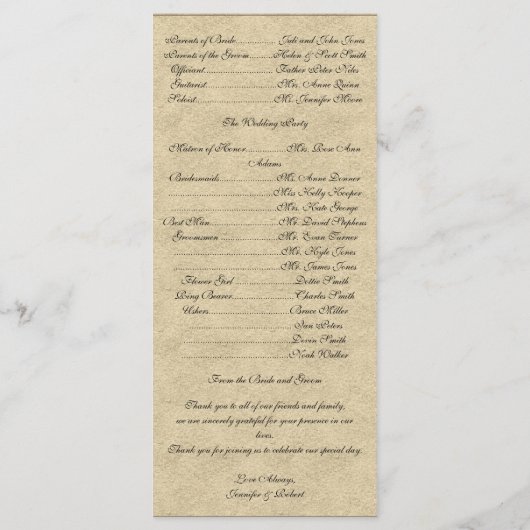 Parents of Bride................Judi and John Jones
Parents of the Groom.........Helen & Scott Smith
Officiant...........................Father Peter Niles
Guitarist...........................Mrs. Anne Quinn
Soloist..............................Ms. Jennifer Moore
The Wedding Party
Matron of Honor...............Mrs. Rose Ann
Adams
Bridesmaids.......................Ms. Anne Donner
.......................................Miss Kelly Hooper
.......................................Mrs. Kate George
Best Man..........................Mr. David Stephens
Groomsmen.......................Mr. Evan Turner
.......................................Mr. Kyle Jones
.......................................Mr. James Jones
Flower Girl.......................Dottie Smith
Ring Bearer......................Charles Smith
Ushers..............................Bruce Miller
.......................................Ian Peters
.......................................Devin Smith
.......................................Noah Walker
From the Bride and Groom
Thank you to all of our friends and family,
we are sincerely grateful for your presence in our
lives.
Thank you for joining us to celebrate our special day.
Love Always,
Jennifer & Robert